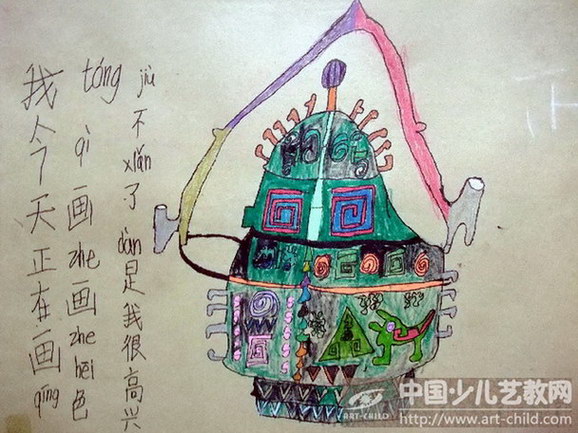 我今天正在画qīng
tóng qì画zhe画zhe hēi色
jiù不xiǎn了dàn是我很高兴
ART-CHILD
中国少儿艺教网
http://www.art-child.com